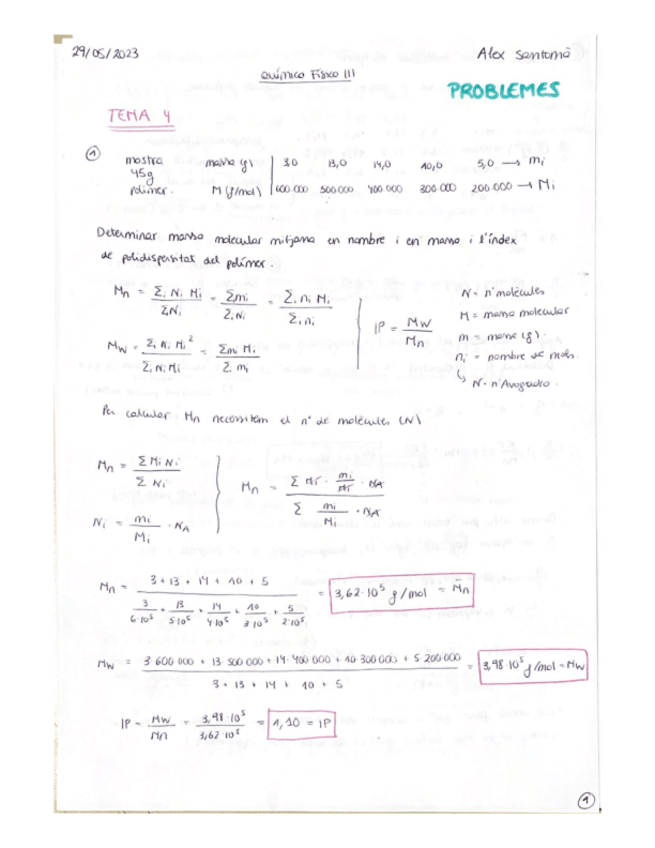 29/05/2023 Alex Santomà
Químico Físico III
PROBLEMES
TEMA 4
① mostra massa (g) | 3,0 13,0 14,0 10,0 5,0 → mi
45g
polímer. M (g/mol) | 600 000 500 000 400 000 300 000 200 000 → Mi
Determinar massa molecular mitjana en nombre i en massa i l'índex
de polidispersitat del polímer.
Mn = Σi Ni Mi / ΣNi = Σmi / Σi Ni = Σi ni Mi / Σi ni
N = nº molècules
M = massa molecular
IP = Mw / Mn
m = massa (g).
Mw = Σi Ni Mi² / Σi Ni Mi = Σmi Mi / Σi mi
ni = nombre de mols
↳ N = nºAvogadro.
Per calcular Mn necessitem el nº de molècules (N)
Mn = Σ Mi Ni / Σ Ni
Mn = Σ Mi · mi/Mi · NA / Σ mi/Mi · NA
Ni = mi/Mi · NA
Mn = 3 + 13 + 14 + 10 + 5 / 3/6·10⁵ + 13/5·10⁵ + 14/4·10⁵ + 10/3·10⁵ + 5/2·10⁵ = 3,62·10⁵ g/mol = Mn
Mw = 3·600 000 + 13·500 000 + 14·400 000 + 10·300 000 + 5·200 000 / 3 + 13 + 14 + 10 + 5 = 3,98·10⁵ g/mol = Mw
IP = Mw/Mn = 3,98·10⁵ / 3,62·10⁵ = 1,10 = IP
①